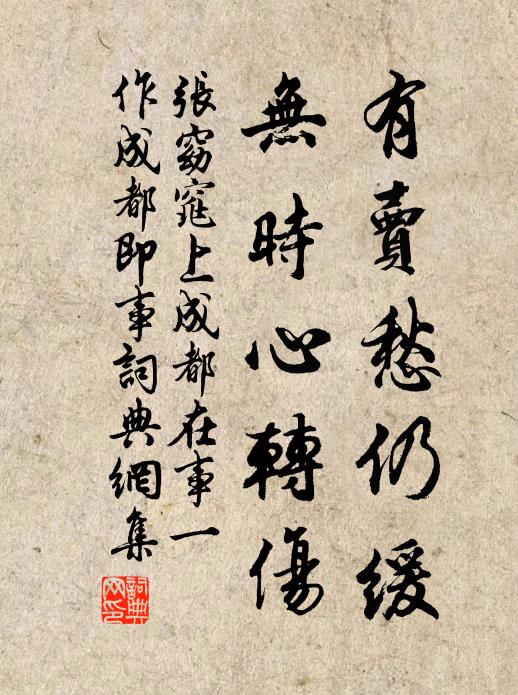 有賣愁仍緩
無時心轉傷
張窈窕上成都在事一
作成都即事詞典網集
詞典网印